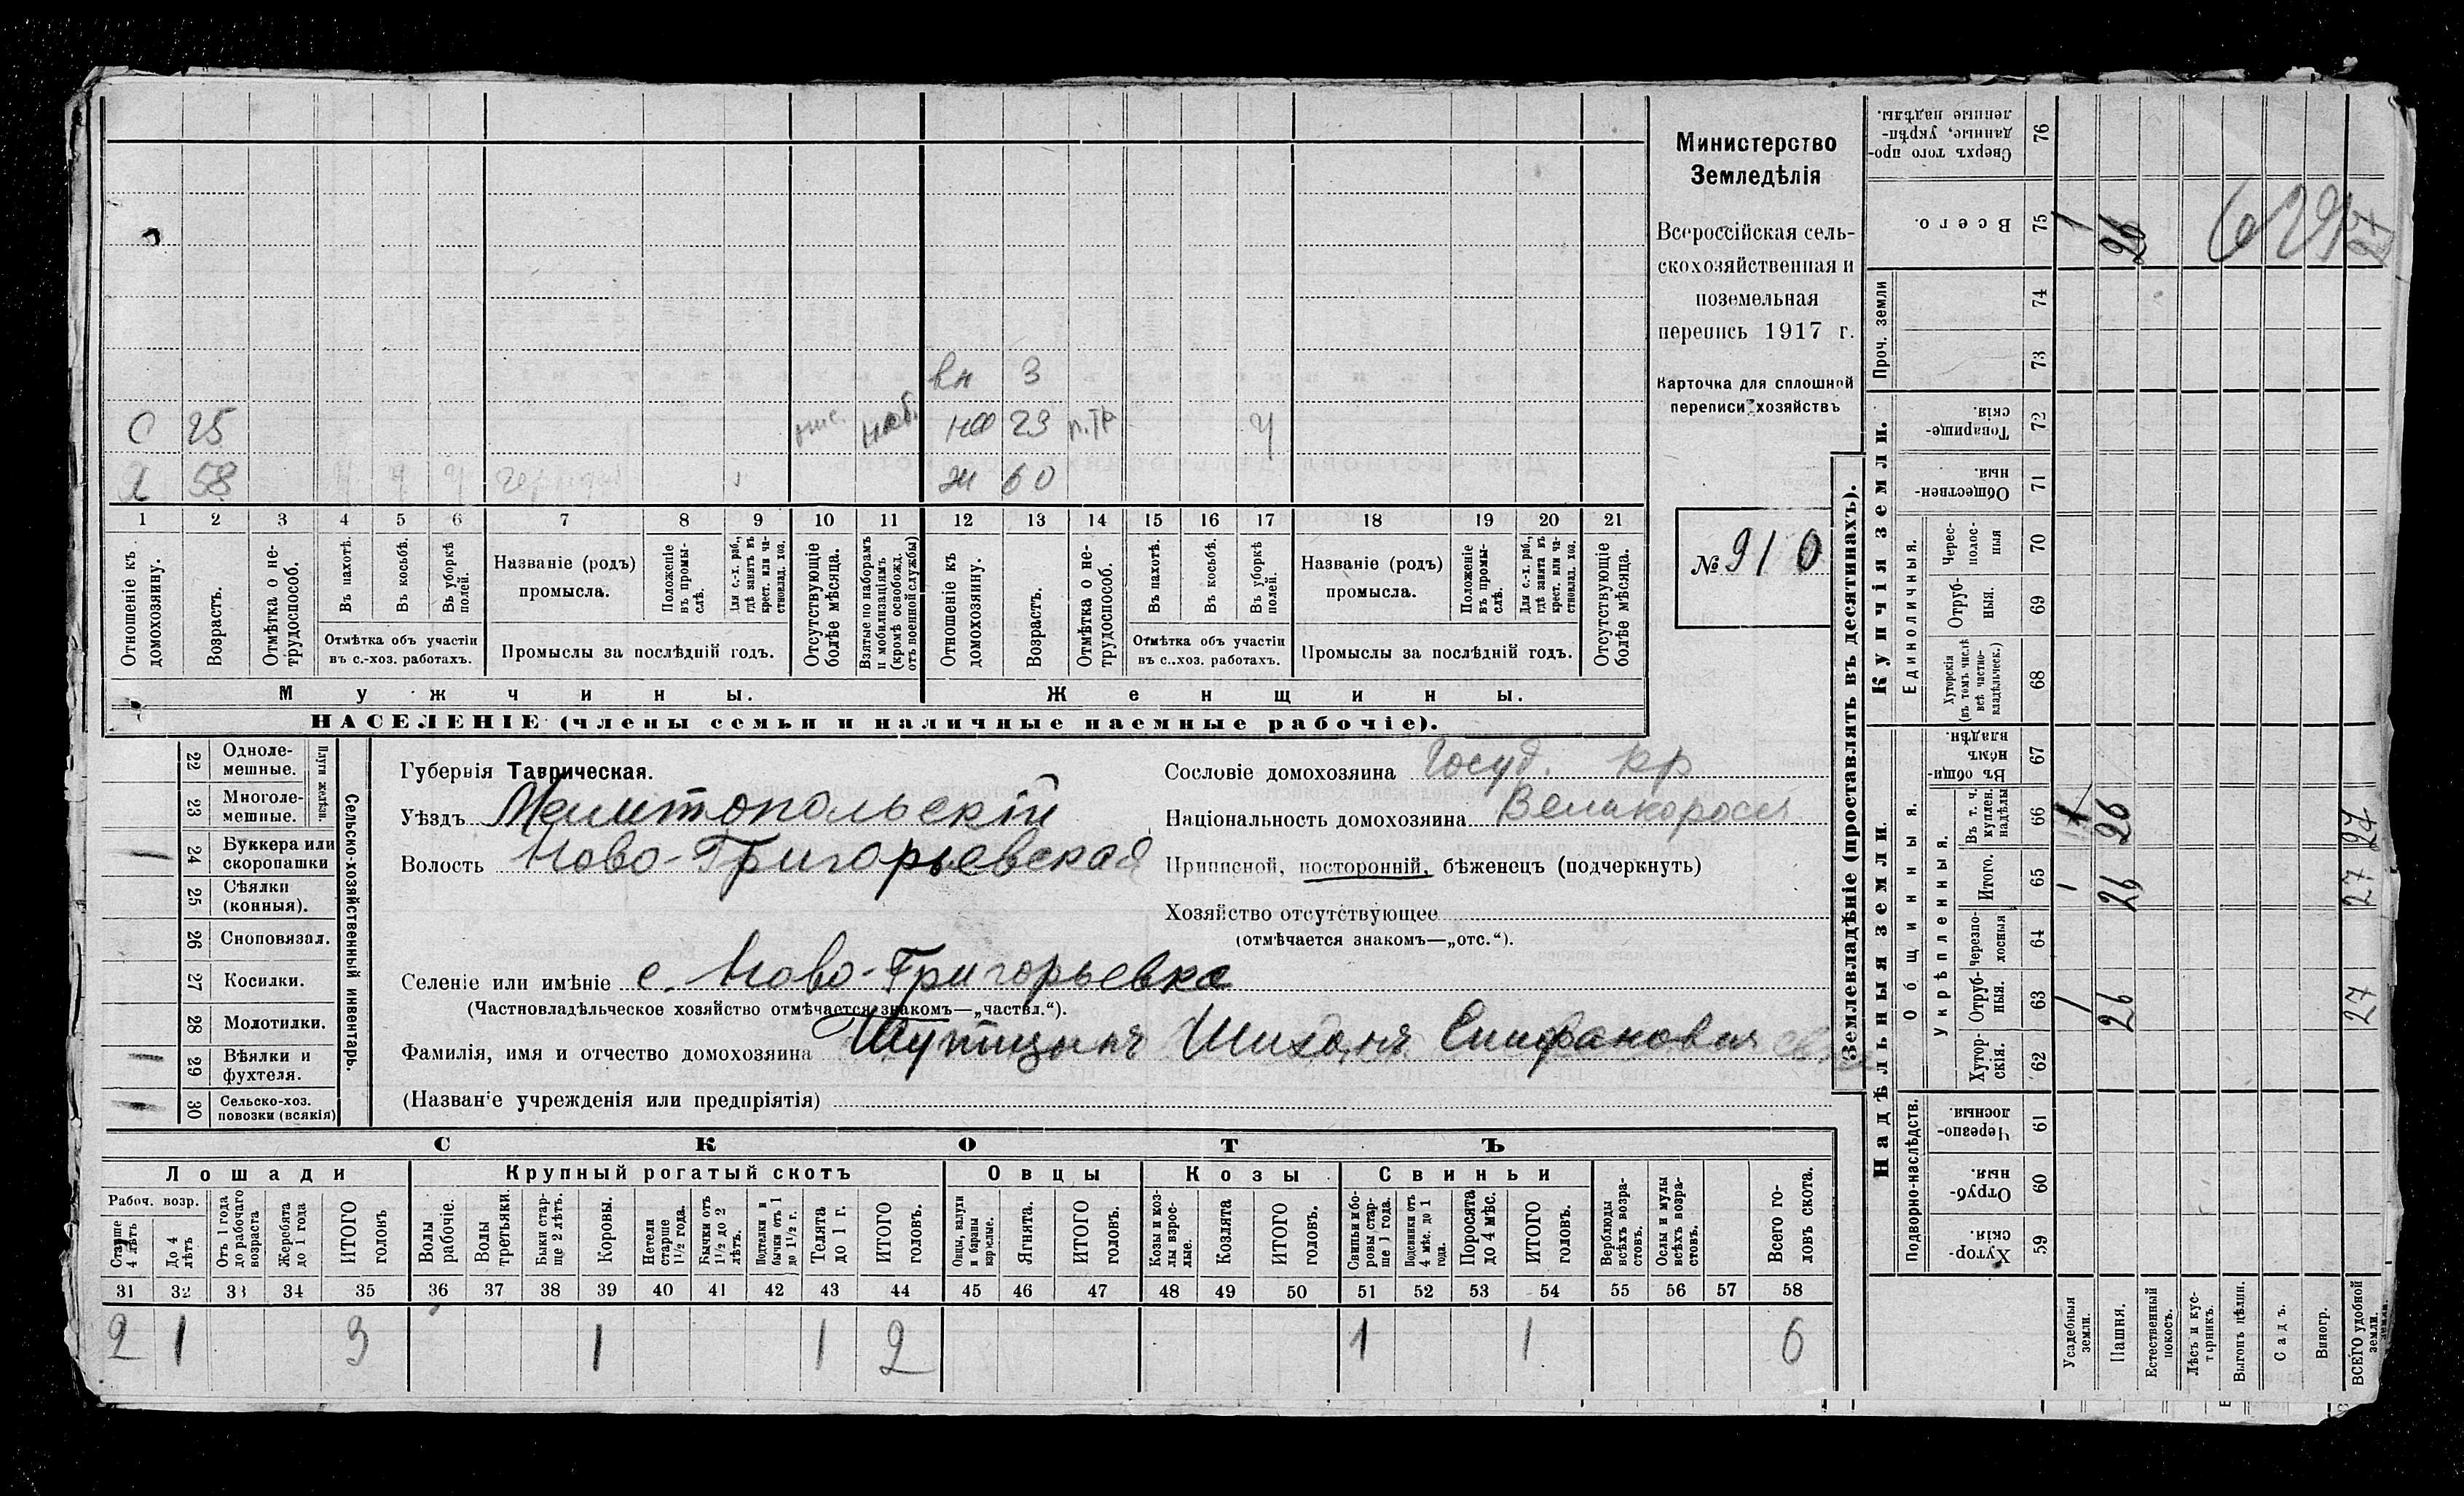 вн 3
С 25 отс. наб. нев 23 п.тр ч
Х 58 ч ч ч ж 60
1 2 3 4 5 6 7 8 9 10 11 12 13 14 15 16 17 18 19 20 21
Отношеніе къ домохозяину.
Возрастъ.
Отмѣтка о нетрудоспособ.
Въ пахотѣ.
Въ косьбѣ.
Въ уборкѣ полей.
Отмѣтка объ участіи въ с.-хоз. работахъ.
Названіе (родъ) промысла.
Положеніе въ промыслѣ.
Для с.-х. раб., гдѣ занятъ въ крест. или частновлад. хоз.
Промыслы за послѣдній годъ.
Отсутствующіе болѣе мѣсяца.
Взятые по наборамъ и мобилизаціямъ (кромѣ освобожд. отъ военной службы)
Отношеніе къ домохозяину.
Возрастъ.
Отмѣтка о нетрудоспособ.
Въ пахотѣ.
Въ косьбѣ.
Въ уборкѣ полей.
Отмѣтка объ участіи въ с.-хоз. работахъ.
Названіе (родъ) промысла.
Положеніе въ промыслѣ.
Для с.-х. раб., гдѣ занята въ крест. или частновлад. хоз.
Промыслы за послѣдній годъ.
Отсутствующіе болѣе мѣсяца.
Мужчины. Женщины.
НАСЕЛЕНІЕ (члены семьи и наличные наемные рабочіе).
Министерство
Земледѣлія
Всероссійская сель-
скохозяйственная и
поземельная
перепись 1917 г.
Карточка для сплошной
переписи хозяйствъ
№ 910
22 Одноле-
мешные.
23 Многоле-
мешные.
Плуги желѣзн.
24 Буккера или
скоропашки
25 Сѣялки
(конныя).
26 Сноповязал.
27 Косилки.
28 Молотилки.
29 Вѣялки и
фухтеля.
30 Сельско-хоз.
повозки (всякія)
Сельско-хозяйственный инвентарь.
Губернія Таврическая.
Уѣздъ Мелитопольскій
Волость Ново-Григорьевская
Селеніе или имѣніе с. Ново-Григорьевка
(Частновладѣльческое хозяйство отмѣчается знакомъ—„частвл.“).
Фамилія, имя и отчество домохозяина Шупицынъ Епифановъ
(Названіе учрежденія или предпріятія)
Сословіе домохозяина Госуд. кр
Національность домохозяина Великороссъ
Приписной, посторонній, бѣженецъ (подчеркнуть)
Хозяйство отсутствующее
(отмѣчается знакомъ—„отс.“).
СКОТЪ
Лошади Крупный рогатый скотъ Овцы Козы Свиньи
Рабоч. возр.
Старше 4 лѣтъ
До 4 лѣтъ
Отъ 1 года до рабочаго возраста
Жеребята до 1 года
ИТОГО головъ
Волы рабочіе.
Волы третьяки.
Быки старше 2 лѣтъ.
Коровы.
Нетели старше 1½ года.
Бычки отъ 1½ до 2 лѣтъ.
Подтелки и бычки отъ 1 до 1½ г.
Телята до 1 г.
ИТОГО головъ.
Овцы, валухи и бараны взрослые.
Ягнята.
ИТОГО головъ.
Козы и козлы взрослые.
Козлята
ИТОГО головъ.
Свиньи и боровы старше 1 года.
Подсвинки отъ 4 мѣс. до 1 года.
Поросята до 4 мѣс.
ИТОГО головъ.
Верблюды всѣхъ возрастовъ.
Ослы и мулы всѣхъ возрастовъ.
Всего головъ скота.
31 32 33 34 35 36 37 38 39 40 41 42 43 44 45 46 47 48 49 50 51 52 53 54 55 56 57 58
2 1 3 1 1 2 1 1 6
Землевладѣніе (проставлять въ десятинахъ).
Надѣльныя земли. Купчія земли. Проч. земли
Подворно-наслѣдств.
Общинныя.
Укрѣпленныя.
Единоличныя.
Сверхъ того проданные, укрѣпленные надѣлы. 76
Всего. 75 1 26 27
629
74
73
Товарищескія. 72
Общественныя. 71
Чересполосныя 70
Отрубныя. 69
Хуторскія (въ томъ числѣ всѣ частновладѣльческ.) 68
Въ общинномъ владѣн. 67
Въ т. ч. куплен. надѣлы 66 1 26 27
Итого. 65 1 26 27
Черезполосныя 64
Отрубныя. 63 1 26 27
Хуторскія. 62
Черезполосныя. 61
Отрубныя. 60
Хуторскія. 59
Усадебныя земли.
Пашня.
Естественный покосъ.
Лѣсъ и кустарникъ.
Выгонъ цѣлин.
Садъ.
Виногр.
ВСЕГО удобной земли.